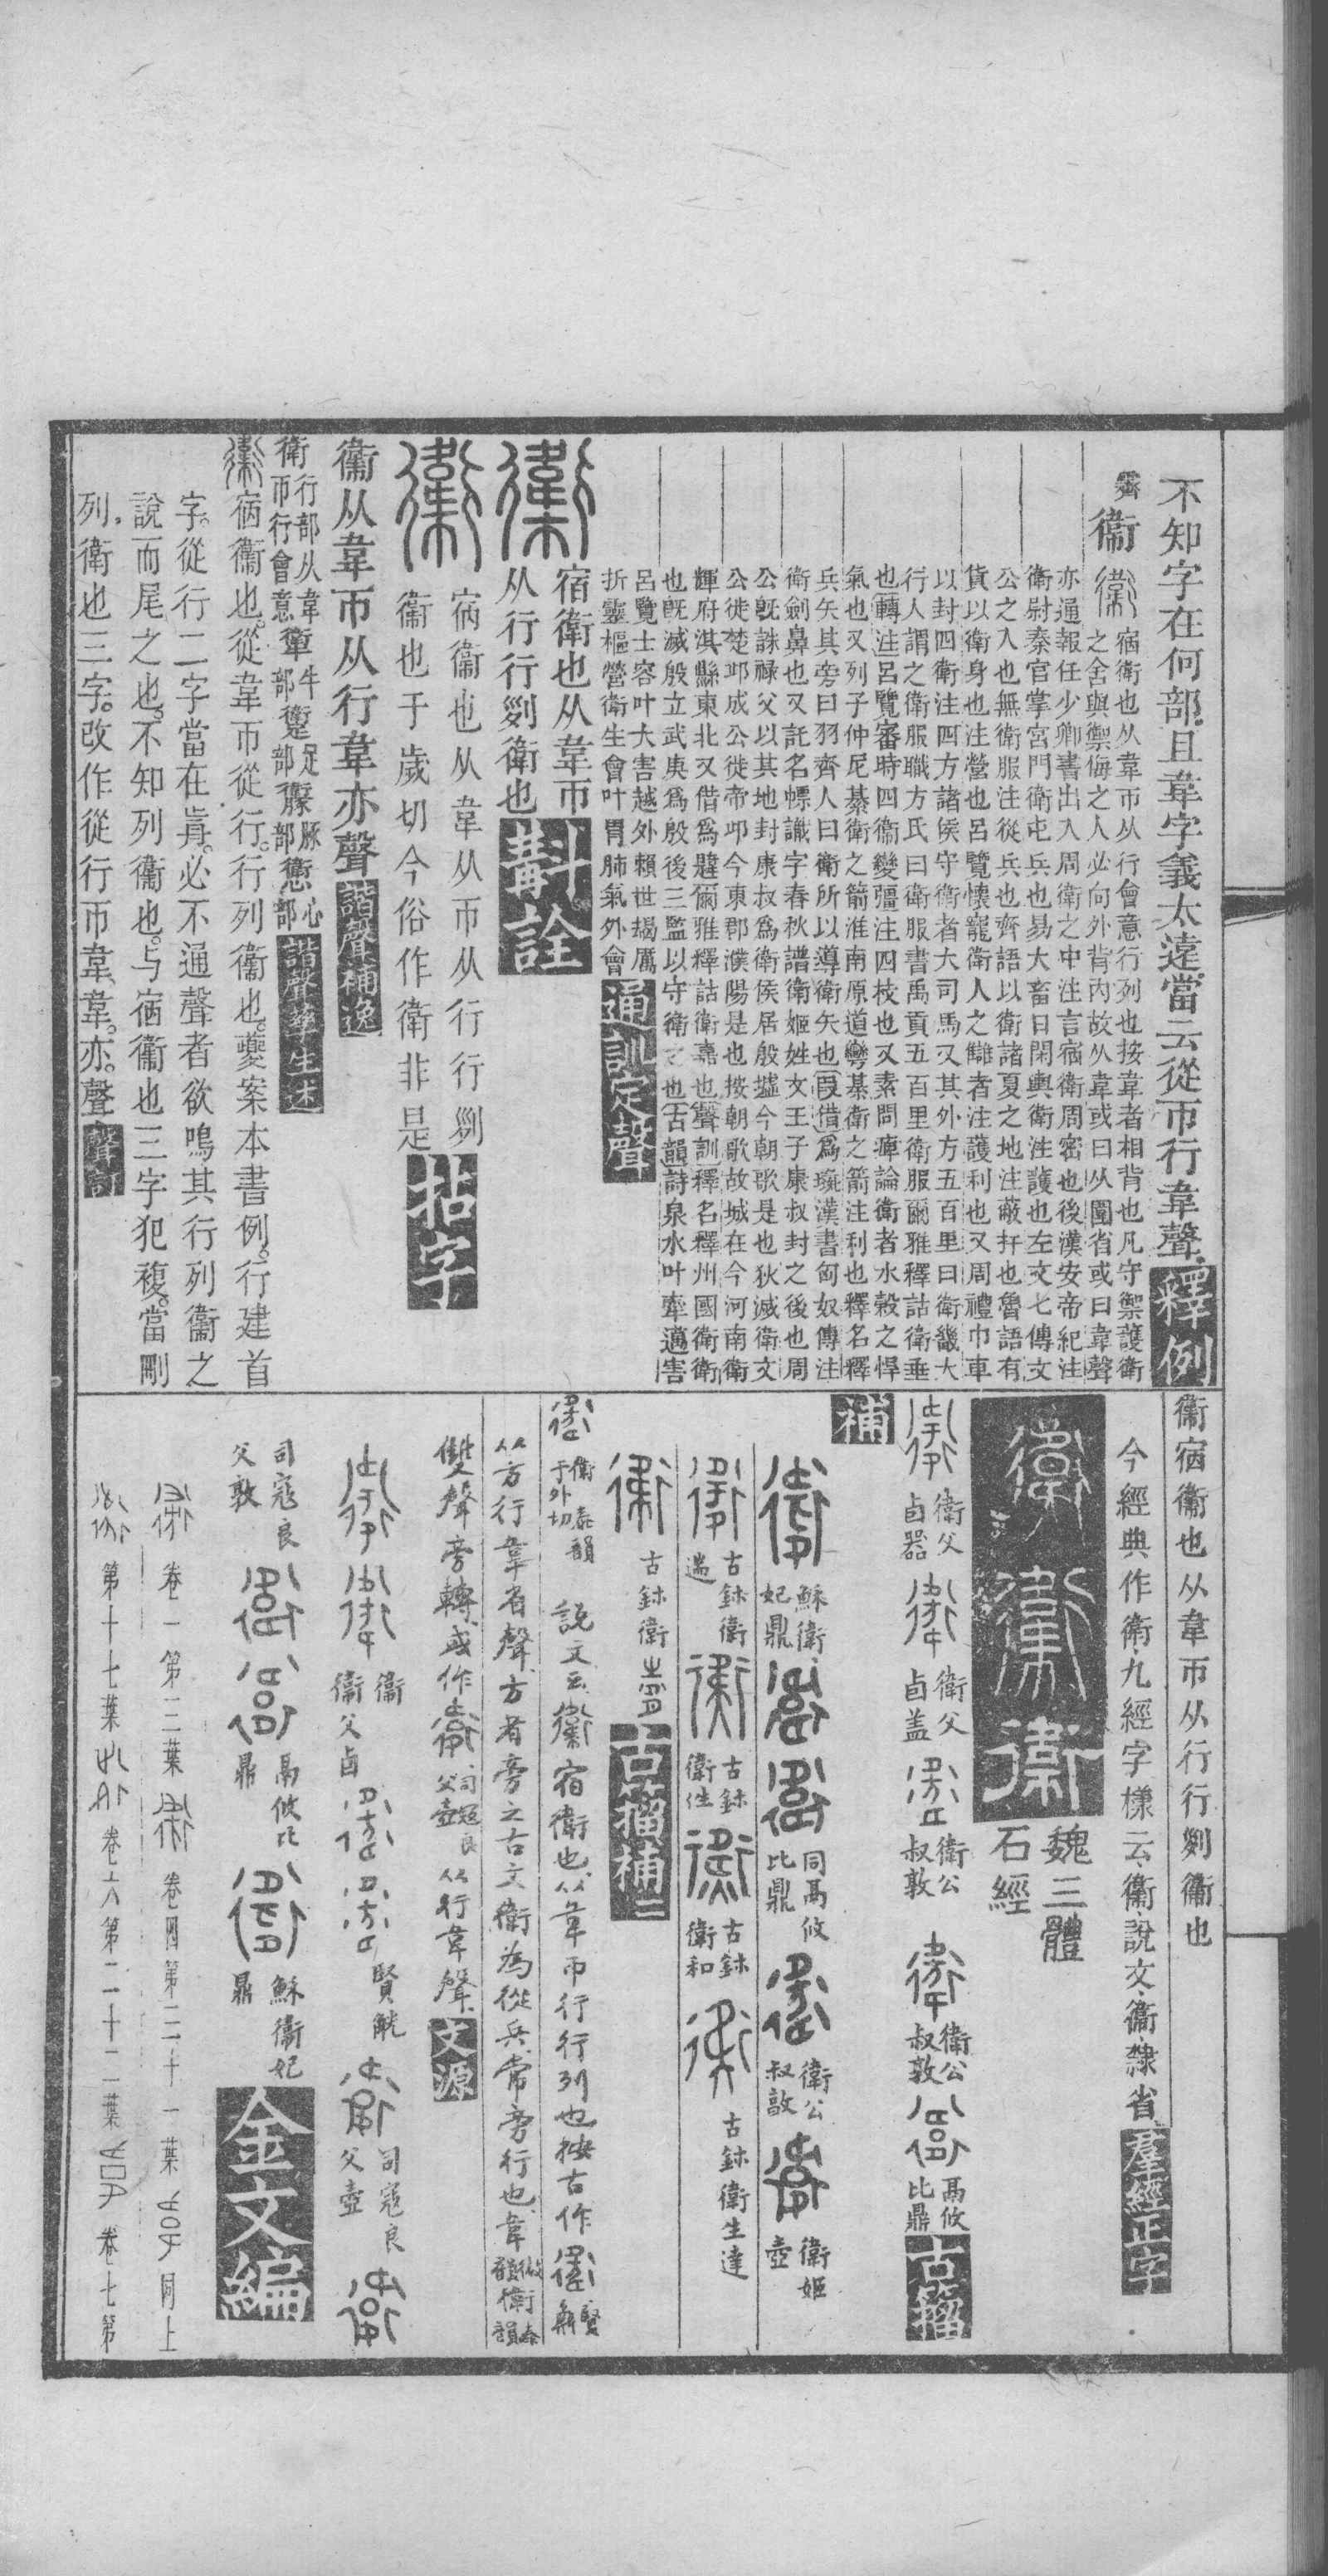 不知字在何部且韋字義太遠當云從帀行韋聲釋例
齊
衞
宿衛也从韋帀从行會意行列也按韋者相背也凡守禦護衛
之舍與禦侮之人必向外背內故从韋或曰从圍省或曰韋聲
亦通報任少卿書出入周衛之中注言宿衛周密也後漢安帝紀注
衛尉秦官掌宮門衛屯兵也易大畜日閑輿衛注護也左文七傳文
公之入也無衛服注從兵也齊語以衛諸夏之地注蔽扞也魯語有
貨以衛身也注營也呂覽懷寵衛人之讎者注護利也又周禮巾車
以封四衛注四方諸侯守衛者大司馬又其外方五百里曰衛畿大
行人謂之衛服職方氏曰衛服書禹貢五百里衛服爾雅釋詁衛垂
也轉注呂覽審時四衛變彊注四枝也又素問痺論衛者水穀之悍
氣也又列子仲尼綦衛之箭淮南原道彎綦衛之箭注利也釋名釋
兵矢其旁曰羽齊人曰衛所以導衛矢也叚借爲璏漢書匈奴傳注
衛劍鼻也又託名幖識字春秋譜衛姬姓文王子康叔封之後也周
公旣誅祿父以其地封康叔爲衛侯居殷墟今朝歌是也狄滅衛文
公徙楚邱成公徙帝邱今東郡濮陽是也按朝歌故城在今河南衛
輝府淇縣東北又借爲躗爾雅釋詁衛嘉也聲訓釋名釋州國衛衛
也旣滅殷立武庚爲殷後三監以守衛之也古韻詩泉水叶舝邁害
呂覽士容叶大害越外賴世揭厲
折靈樞營衛生會叶胃肺氣外會通訓定聲
宿衛也从韋帀
从行行列衛也斠詮
宿衞也从韋从帀从行行列
衞也于歲切今俗作衛非是拈字
衞从韋帀从行韋亦聲諧聲補逸
衛行部从韋
帀行會意
諧聲孳生述
宿衞也從韋帀從行行列衞也夔案本書例行建首
字從行二字當在眞必不通聲者欲鳴其行列衞之
說而尾之也不知列衞也与宿衞也三字犯複當刪
列衛也三字改作從行帀韋韋亦聲聲訂
衞宿衞也从韋帀从行行列衞也
今經典作衛九經字樣云衞說文衛隸省羣經正字
魏三體
石經
衛父
卣器
衛父
卣蓋
衛公
叔敦
衛公
叔敦
鬲攸
比鼎
古籀
補
穌衛
妃鼎
同鬲攸
比鼎
衛公
叔敦
衛姬
壺
古鉢衛
古鉢
衛生
古鉢
衛和
古鉢衛生達
古鉢衛
古籀補二
衛泰韻
于外切
說文云 宿衛也从韋帀行行列也按古作
从方行韋省聲方者旁之古文衛為從兵常旁行也韋微韻衛泰韻
雙聲旁轉或作 司寇良父壺 从行韋聲文源
衞
衞父卣
賢觥
司寇良
父壺
司寇良
父敦
鬲攸比
鼎
穌衛妃
鼎
金文編
卷一第三葉 卷四第二十一葉 同上
第十七葉 卷六第二十二葉 卷七第